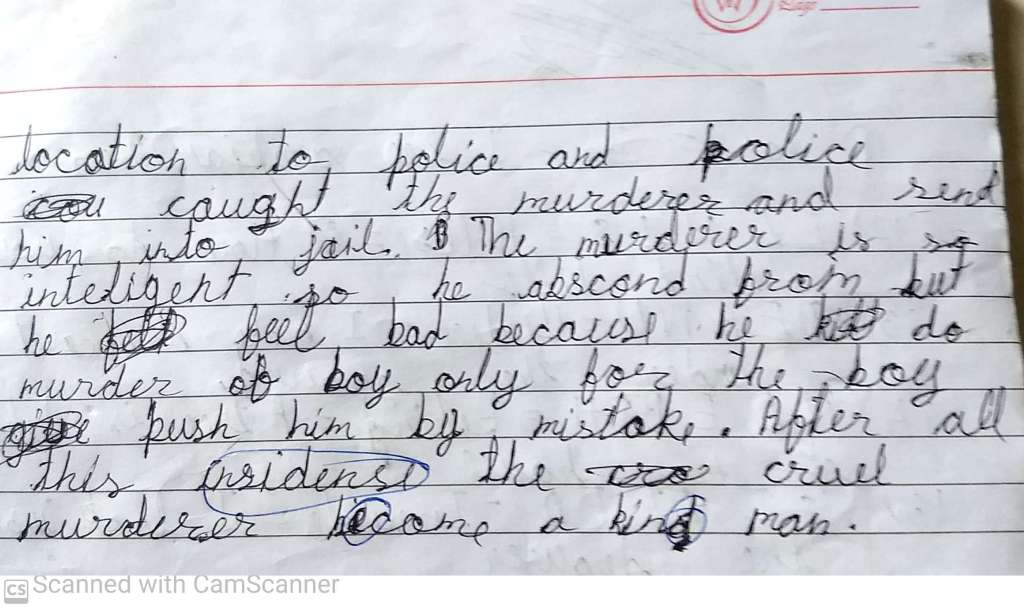 Page
location to police and police
caught the murderer and send
him into jail. The murderer is so
inteligent so he abscond from but
he feel bad because he do
murder of boy only for the boy
push him by mistake. After all
this insidense the cruel
murderer become a kind man.
CS Scanned with CamScanner